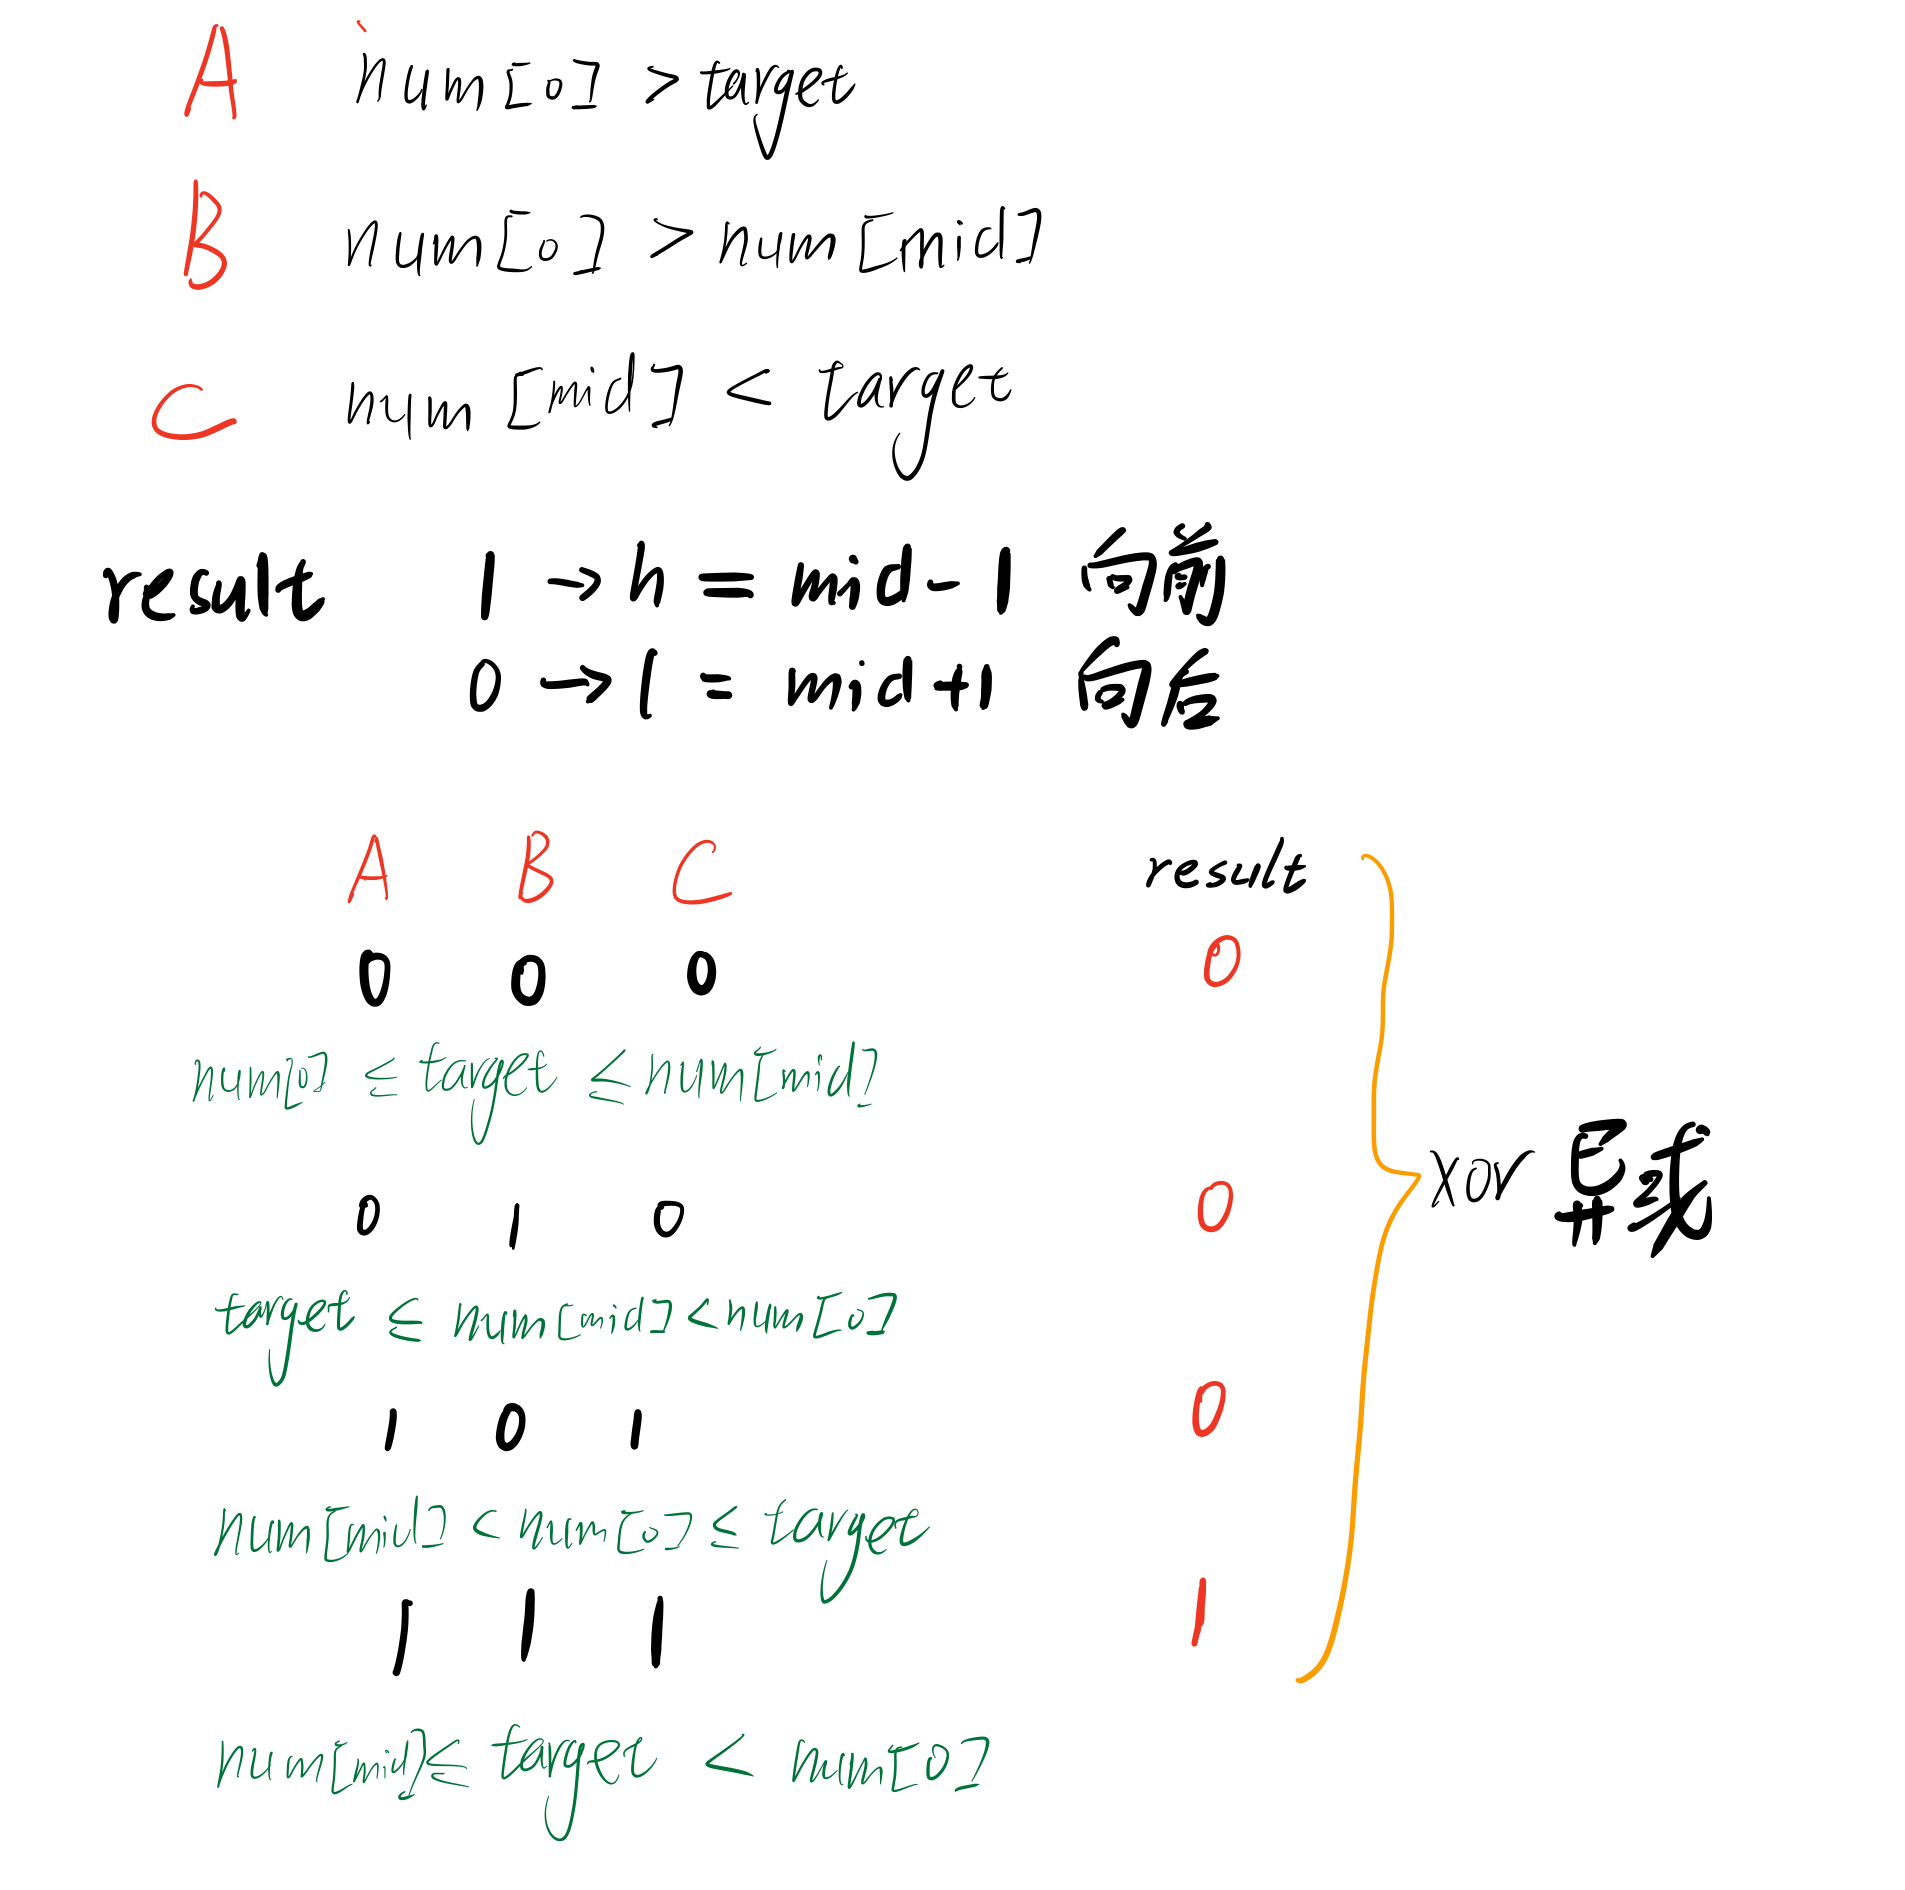 A num[0] > target
B num[0] > num[mid]
C num[mid] < target
result 1 → h = mid - 1 向前
0 → l = mid + 1 向后
A B C result
0 0 0 0
num[0] ≤ target ≤ num[mid]
0 1 0 0
xor 异或
target ≤ num[mid] < num[0]
1 0 1 0
num[mid] < num[0] ≤ target
1 1 1 1
num[mid] ≤ target < num[0]